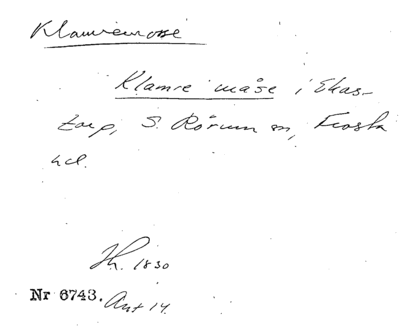 Klamremosse
Klamre måse i Ekas-
torp, S. Rörum sn, Frosta
hd.
Jh. 1830
Nr 6743. Ant 14.